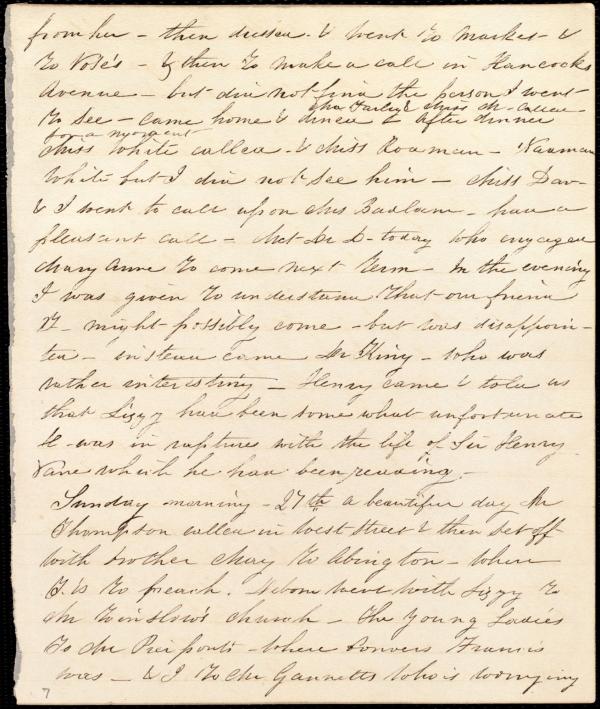 from her - then dressed & went to Market - &
to Vose's - & then to make a call in Hancock
Avenue - but did not find the person I went
to see - came home & dined & after dinner
Miss Farley & Miss M. called
for a moment
Miss White called - & Miss Rodman -
White but I did not see him - Miss Dav-
& I went to call upon Mrs Badlam - had a
pleasant call - Met Dr D - today who engaged
Mary Anne to come next term - In the evening
I was given to understand that our friend
might possibly come - but was disappoin-
ted - instead came Mr King - who was
rather interesting - Henry came & told us
that Lizzy had been somewhat unfortunate
H - was in raptures with the life of Sir Henry
Vane which he had been reading -
Sunday morning - 27th a beautiful day Mr
Thompson called in West Street & then set off
with brother May to Abington - where
T. is to preach. went with Lizzy to
Mr Winslow's church - The Young Ladies
To Mr Pierponts - where Convers Francis
was - & I to Mr Gannetts who is worrying
7